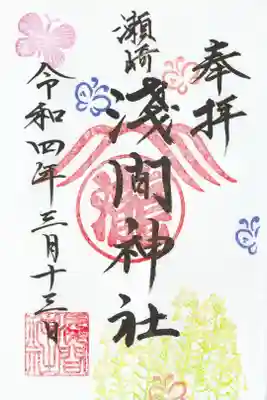 奉拝
瀬崎
淺間神社
令和四年三月十三日